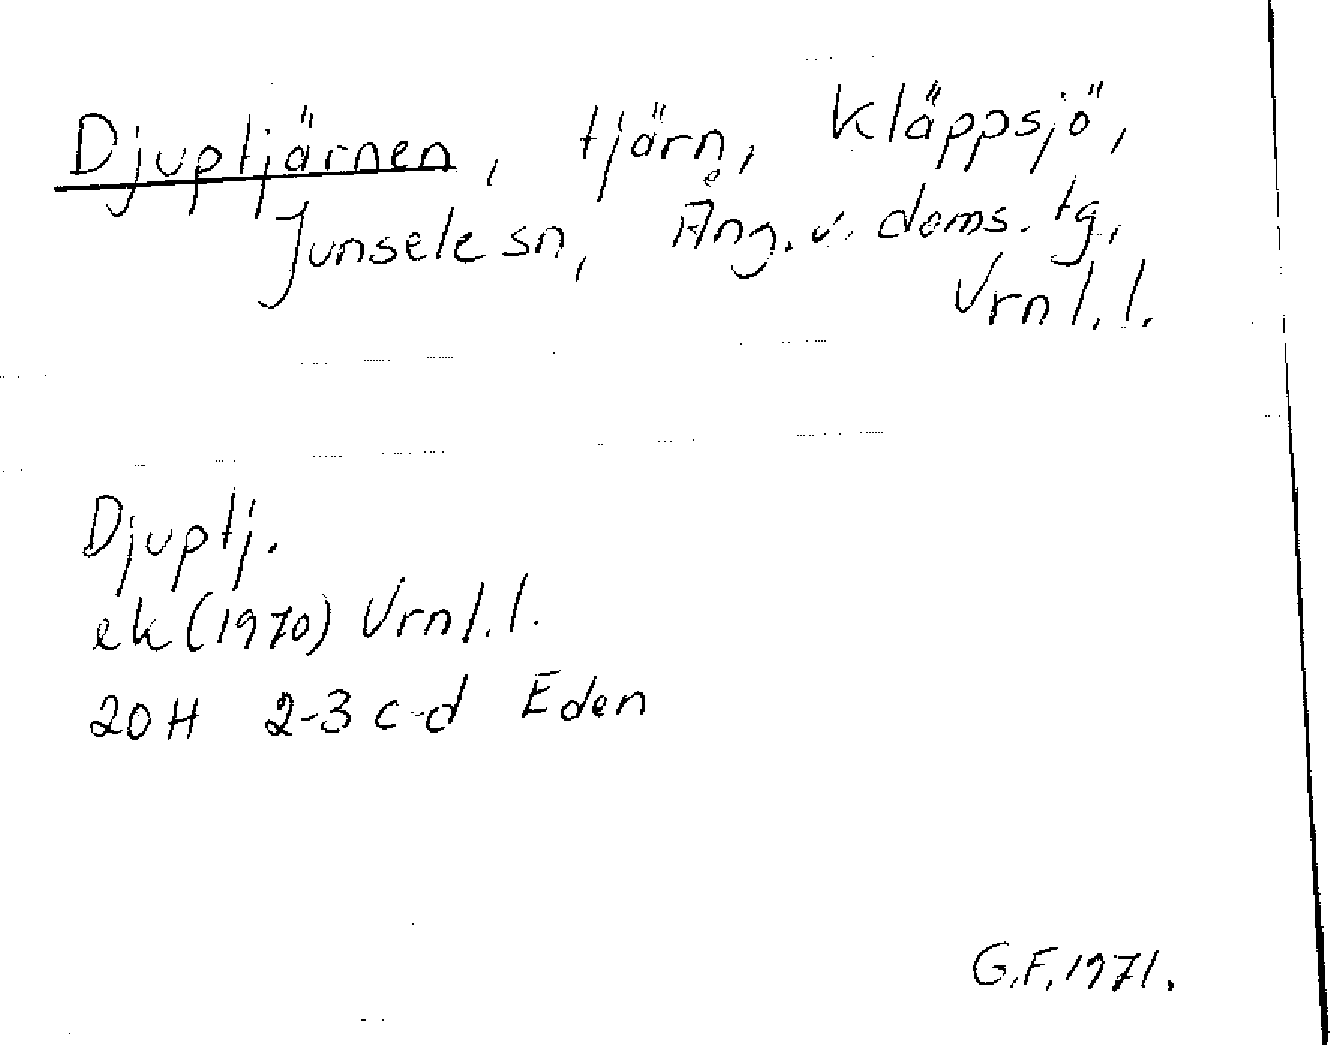 Djuptjärnen, tjärn, Kläppsjö,
Junsele sn, Ång. v. doms. tg,
Vrnl. l.
Djuptj.
ek (1970) Vrnl. l.
20H 2-3 c-d Eden
G.F. 1971.